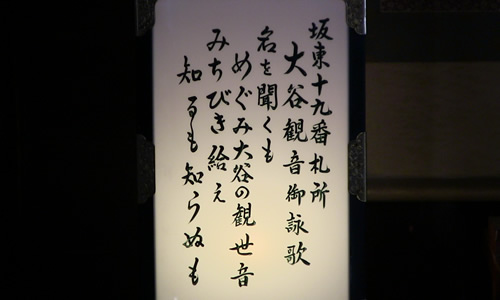 坂東十九番札所
大谷観音御詠歌
名を聞くも
めぐみ大谷の観世音
みちびき給え
知るも知らぬも